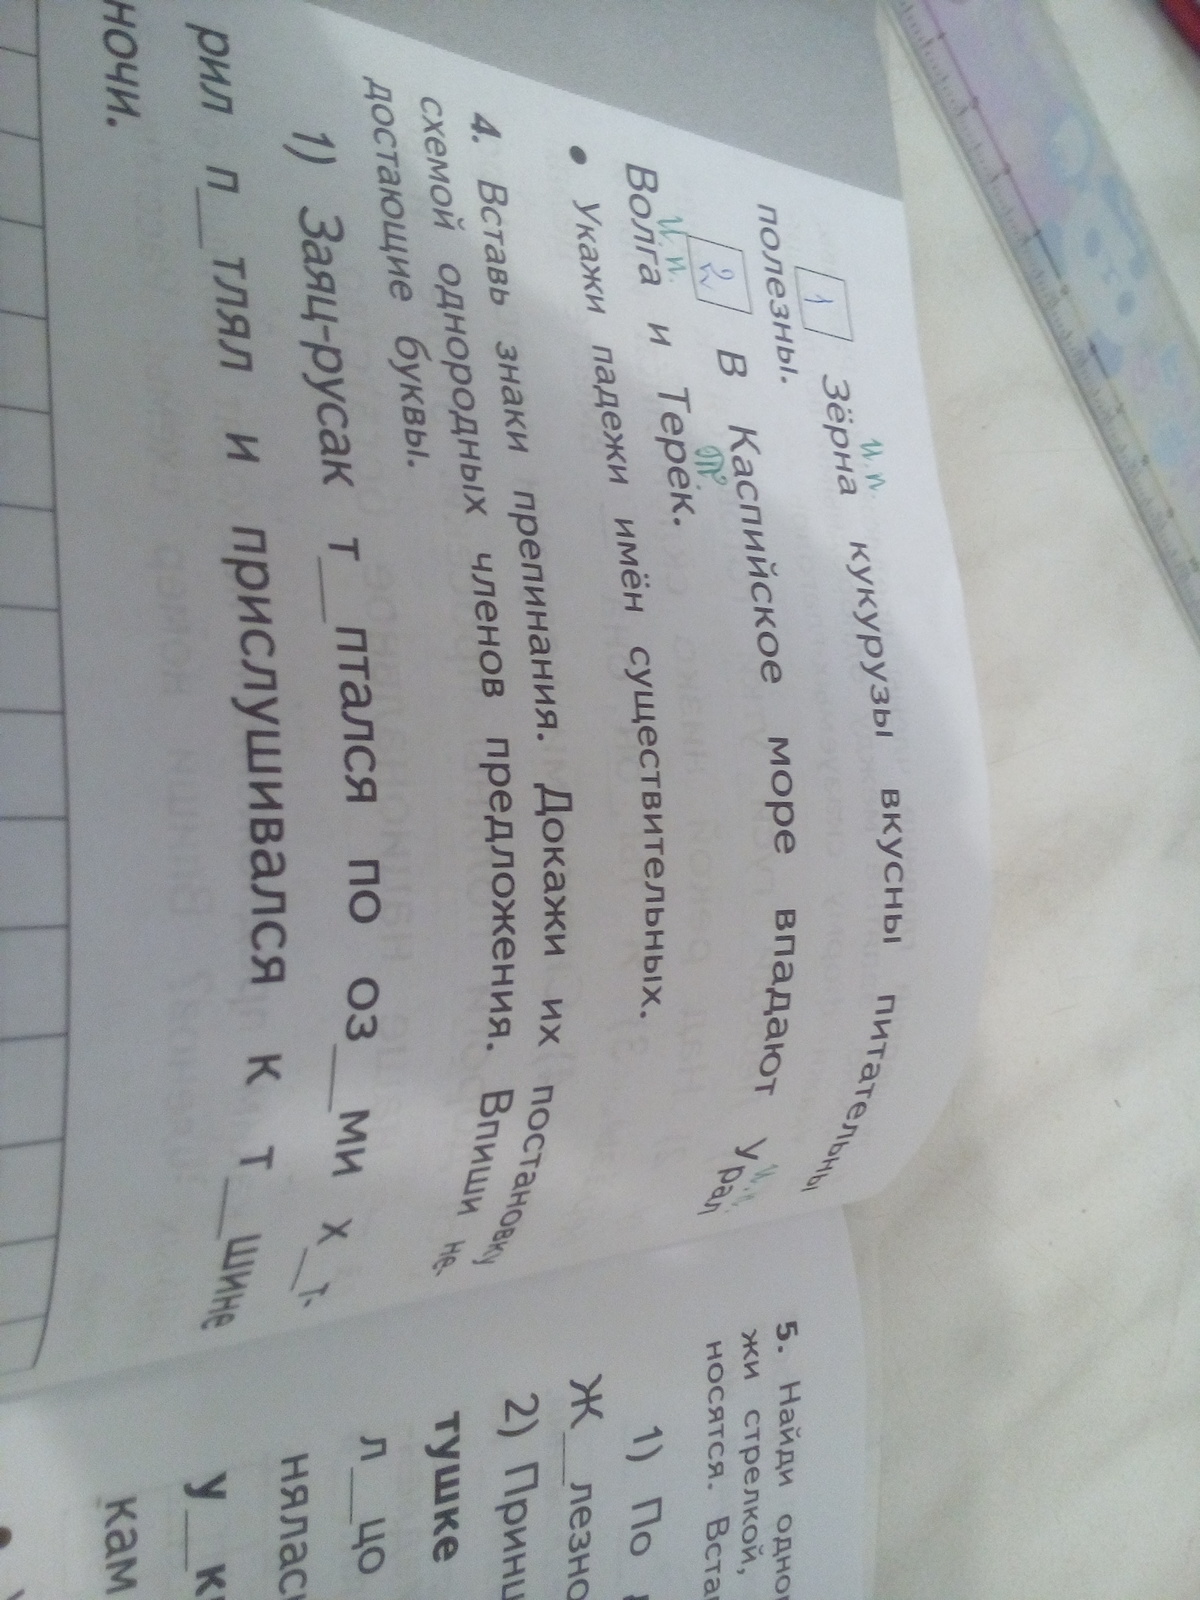 и.п.
1 Зёрна кукурузы вкусны питательны
полезны.
2 В Каспийское море впадают Урал
и.п.
и.п.
Волга и Терек.
• Укажи падежи имён существительных.
4. Вставь знаки препинания. Докажи их постановку
схемой однородных членов предложения. Впиши не-
достающие буквы.
1) Заяц-русак т__птался по оз__ми х__т-
рил п__тлял и прислушивался к т__шине
ночи.
5. Найди одно
жи стрелкой,
носятся. Вста
1) По
Ж__лезно
2) Принц
тушке
л__цо
нялас
у__к
кам